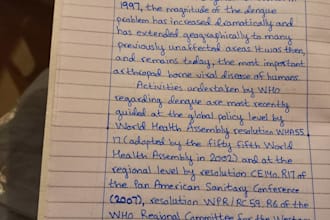 1997, the magnitude of the dengue
problem has increased dramatically and
has extended geographically to many
previously unaffected areas. It was then,
and remains today, the most important
arthropod borne viral disease of humans.
Activities undertaken by WHO
regarding dengue are most recently
guided at the global policy level by
World Health Assembly resolution WHA55.
17 (adopted by the fifty fifth World
Health Assembly in 2002) and at the
regional level by resolution CE140.R17 of
the Pan American Sanitary Conference
(2007), resolution WPR/RC59.R6 of the
WHO Regional Committee for the Western